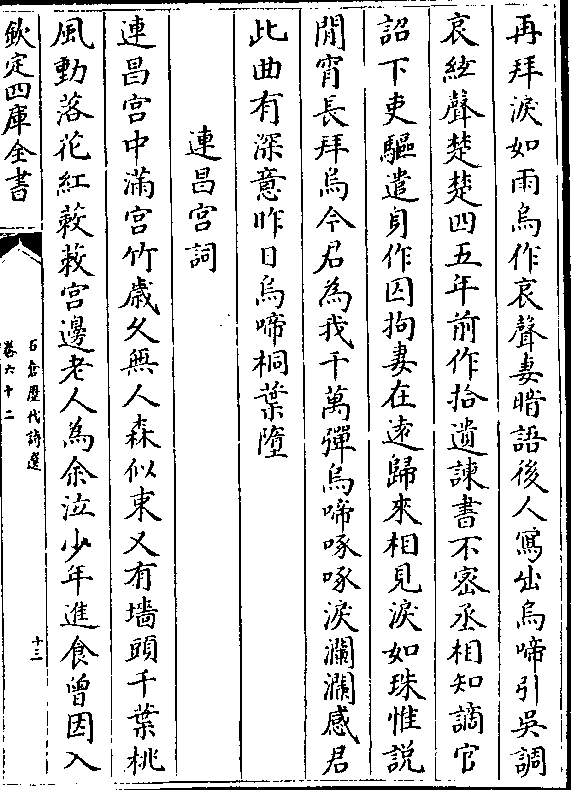 再拜淚如雨烏作哀聲妻暗語後人寫出烏啼引吳調
哀絃聲楚楚四五年前作拾遺諫書不密丞相知謫官
詔下吏驅遣身作囚拘妻在逺歸來相見淚如珠惟説
閒宵長拜烏今君為我千萬彈烏啼啄啄淚瀾瀾感君
此曲有深意昨日烏啼桐葉墮
連昌宫詞
連昌宫中滿宫竹歲久無人森似束又有墻頭千葉桃
風動落花紅蔌蔌宫邊老人為余泣少年進食曾因入
欽定四庫全書
石倉歷代詩選
卷六十二
十三